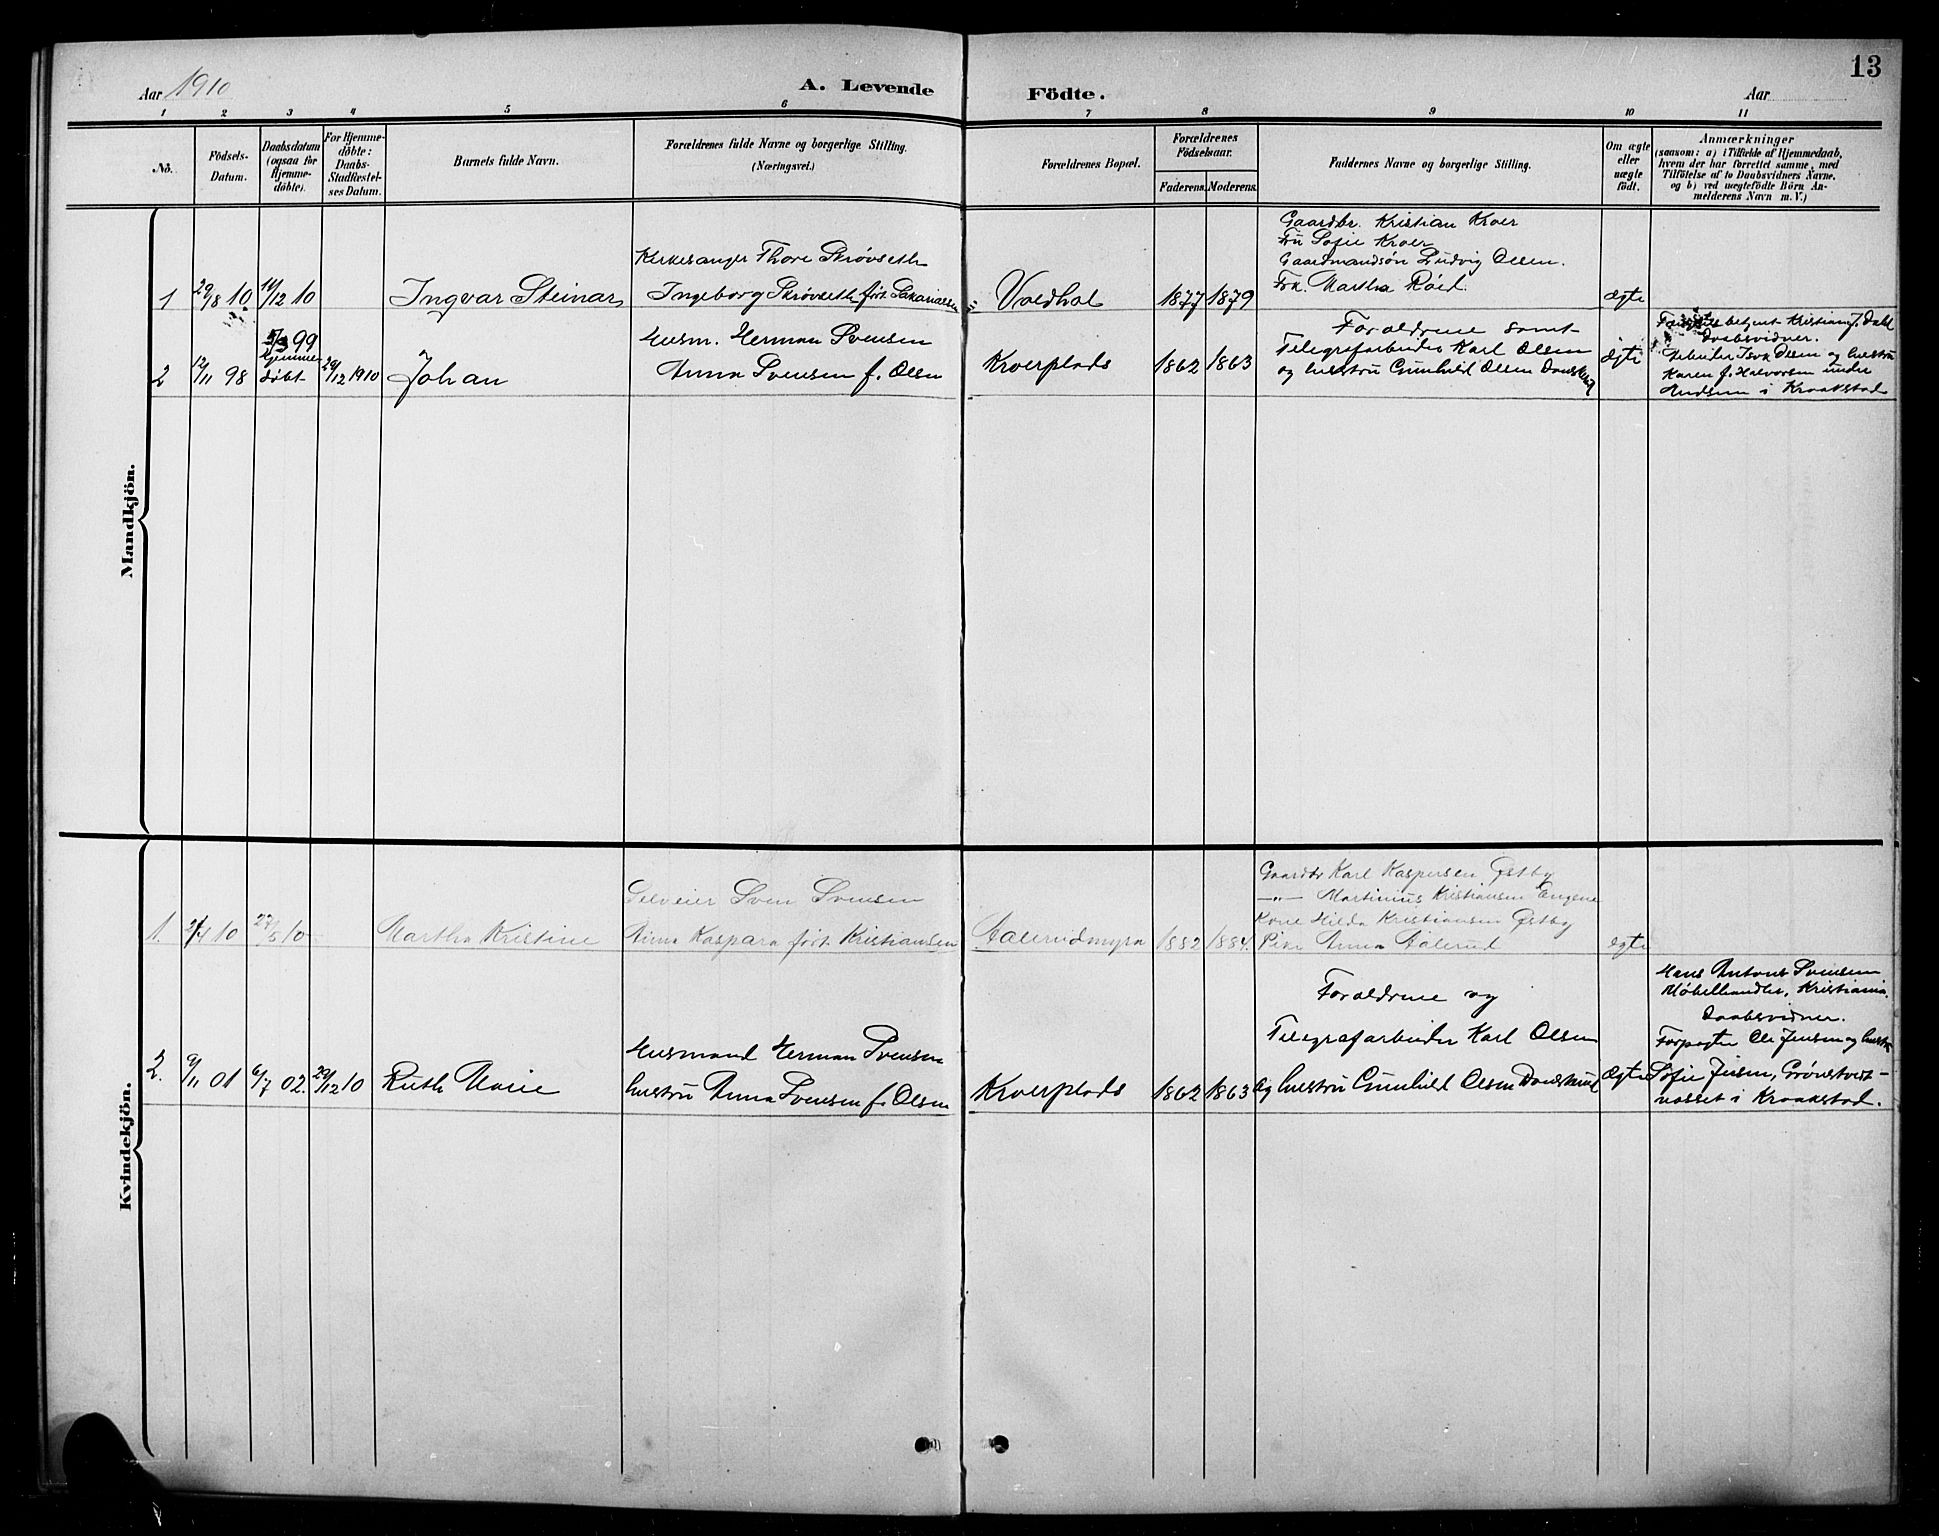 13
Aar 1910
A. Levende Födte.
Aar
1 2 3 4 5 6 7 8 9 10 11
No.
Födsels-
Datum.
Daabsdatum
(ogsaa for
Hjemme-
döbte).
For Hjemme-
döbte:
Daabs-
Stadfæstel-
ses Datum.
Barnets fulde Navn.
Forældrenes fulde Navne og borgerlige Stilling.
(Næringsvei.)
Forældrenes Bopæl.
Forældrenes
Födselsaar.
Faderens. Moderens.
Faddernes Navne og borgerlige Stilling.
Om ægte
eller
uægte
födt.
Anmærkninger
(saasom: a) i Tilfælde af Hjemmedaab,
hvem der har forrettet samme, med
Tilföielse af to Daabsvidners Navne.
og b) ved uægtefödte Börn An-
melderens Navn m. V.)
Mandkjön.
1
29/8 10
11/12 10
Ingvar Steinar
Kirkesanger Thore Skrøvseth
Ingeborg Skrøvseth født Sakariassen
Voldhol
1877
1879
Gaardbr. Kristian Kroer
Fru Sofie Kroer
Gaardmandsøn Ludvig Olsen.
Frk. Martha Röed.
ægte
2
12/11 98
5/3 99
hjemme
döbt
29/12 1910
Johan
Husm. Herman Svensen
Anna Svensen f. Olsen
Kroerplads
1862
1863
Forældrene samt
Telegrafarbeider Karl Olsen
og hustru Gunhild Olsen Danskerud
ægte
betjent Kristian J. Dahl
Daabsvidner.
Arbeider Isak Olsen og hustru
Karen f. Halvorsen under
Audsen i Kraakstad
Kvindekjön.
1.
2/4 10
27/5 10
Martha Kristine
Selveier Sven Svensen
Anna Kaspara født Kristiansen
Aalerudmyra
1882
1884.
Gaardbr Karl Kaspersen Østby
—"— Martinius Kristiansen Engene
Kone Hilda Kristiansen Østby
Pike Anna Aalerud
egte
2.
9/11 01
6/7 02.
29/12 10
Ruth Marie
Husmand Herman Svensen
hustru Anna Svensen f. Olsen
Kroerplads
1862
1863
Forældrene og
Telegrafarbeider Karl Olsen
og hustru Gunhild Olsen Danskerud
ægte
Hans Anton Svensen
Møbelhandler, Kristiania.
Daabsvidner.
Forpagter Ole Jensen og hustru
Sofie Jensen, Grönstvedt-
vasset i Kraakstad.